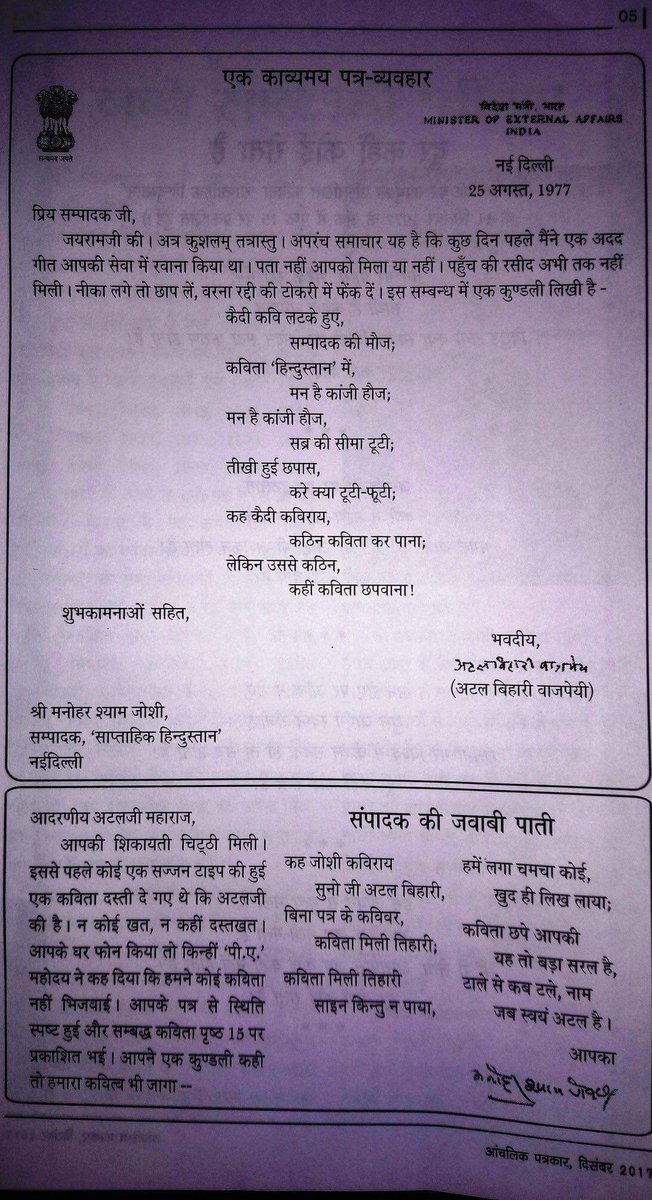 05
एक काव्यमय पत्र-व्यवहार
विदेश मंत्री, भारत
MINISTER OF EXTERNAL AFFAIRS
INDIA
सत्यमेव जयते
नई दिल्ली
25 अगस्त, 1977
प्रिय सम्पादक जी,
जयरामजी की। अत्र कुशलम् तत्रास्तु। अपरंच समाचार यह है कि कुछ दिन पहले मैंने एक अदद
गीत आपकी सेवा में रवाना किया था। पता नहीं आपको मिला या नहीं। पहुँच की रसीद अभी तक नहीं
मिली। नीका लगे तो छाप लें, वरना रद्दी की टोकरी में फेंक दें। इस सम्बन्ध में एक कुण्डली लिखी है -
कैदी कवि लटके हुए,
सम्पादक की मौज;
कविता ‘हिन्दुस्तान’ में,
मन है कांजी हौज;
मन है कांजी हौज,
सब्र की सीमा टूटी;
तीखी हुई छपास,
करे क्या टूटी-फूटी;
कह कैदी कविराय,
कठिन कविता कर पाना;
लेकिन उससे कठिन,
कहीं कविता छपवाना!
शुभकामनाओं सहित,
भवदीय,
अटल बिहारी वाजपेयी
(अटल बिहारी वाजपेयी)
श्री मनोहर श्याम जोशी,
सम्पादक, ‘साप्ताहिक हिन्दुस्तान’
नईदिल्ली
आदरणीय अटलजी महाराज,
आपकी शिकायती चिट्ठी मिली।
इससे पहले कोई एक सज्जन टाइप की हुई
एक कविता दस्ती दे गए थे कि अटलजी
की है। न कोई खत, न कहीं दस्तखत।
आपके घर फोन किया तो किन्हीं ‘पी.ए.’
महोदय ने कह दिया कि हमने कोई कविता
नहीं भिजवाई। आपके पत्र से स्थिति
स्पष्ट हुई और सम्बद्ध कविता पृष्ठ 15 पर
प्रकाशित भई। आपने एक कुण्डली कही
तो हमारा कवित्व भी जागा --
संपादक की जवाबी पाती
कह जोशी कविराय
सुनो जी अटल बिहारी,
बिना पत्र के कविवर,
कविता मिली तिहारी;
कविता मिली तिहारी
साइन किन्तु न पाया,
हमें लगा चमचा कोई,
खुद ही लिख लाया;
कविता छपे आपकी
यह तो बड़ा सरल है,
टाले से कब टले, नाम
जब स्वयं अटल है।
आपका
मनोहर श्याम जोशी
आंचलिक पत्रकार, दिसंबर 2017